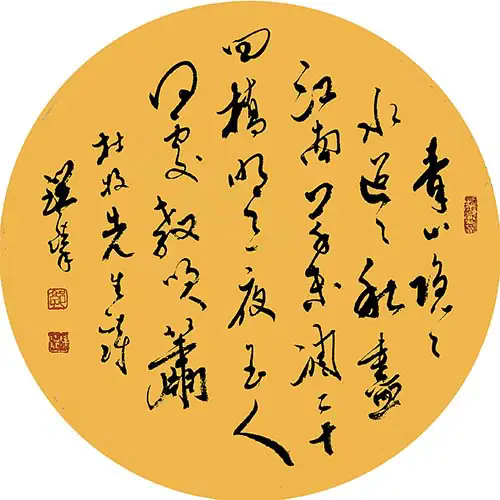 青山隱々
水迢々秋盡
江南草未凋二十
四橋明月夜玉人
何處教吹簫
杜牧先生詩